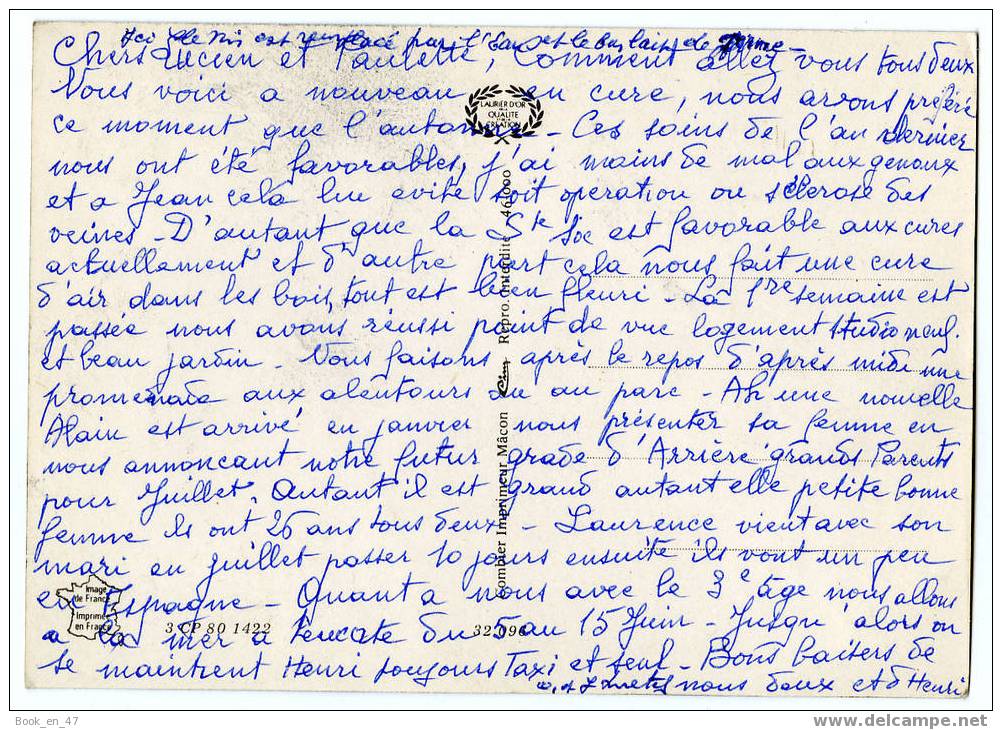 Ici le vin est remplacé par l'Eau et le bus laisse de
Chers Lucien et Paulette, Comment allez vous tous deux
Nous voici a nouveau en cure, nous avons préféré
LAURIER D'OR
QUALITE
CREATION
ce moment que l'automne - Ces soins de l'an dernier
nous ont été favorables, j'ai moins de mal aux genoux
et a Jean cela lui evite soit operation ou sclerose des
veines - D'autant que la Ste Soc est favorable aux cures
actuellement et d'autre part cela nous fait une cure
d'air dans les bois, tout est bien fleuri - La 1re semaine est
passée nous avons réussi point de vue logement studio neuf
et beau jardin - Nous faisons après le repos d'après midi une
promenade aux alentours ou au parc - Ah une nouvelle
Alain est arrivé en janvier nous présenter sa femme en
nous annoncant notre futur grade d'Arrière grands Parents
pour Juillet. Autant il est grand autant elle petite bonne
femme Ils ont 26 ans tous deux - Laurence vient avec son
mari en juillet passer 10 jours ensuite ils vont un peu
en Espagne - Quant a nous avec le 3e âge nous allons
a la mer a Leucate du 5 au 15 Juin - Jusqu'alors on
se maintient Henri toujours Taxi et seul - Bons baisers de
nous deux et d'Henri
Combier Imprimeur Mâcon Cim Repro. Interdite 461000
Image
de France
Imprimé
en France
3 CP 80 1422
32.096
Book_en_47
www.delcampe.net